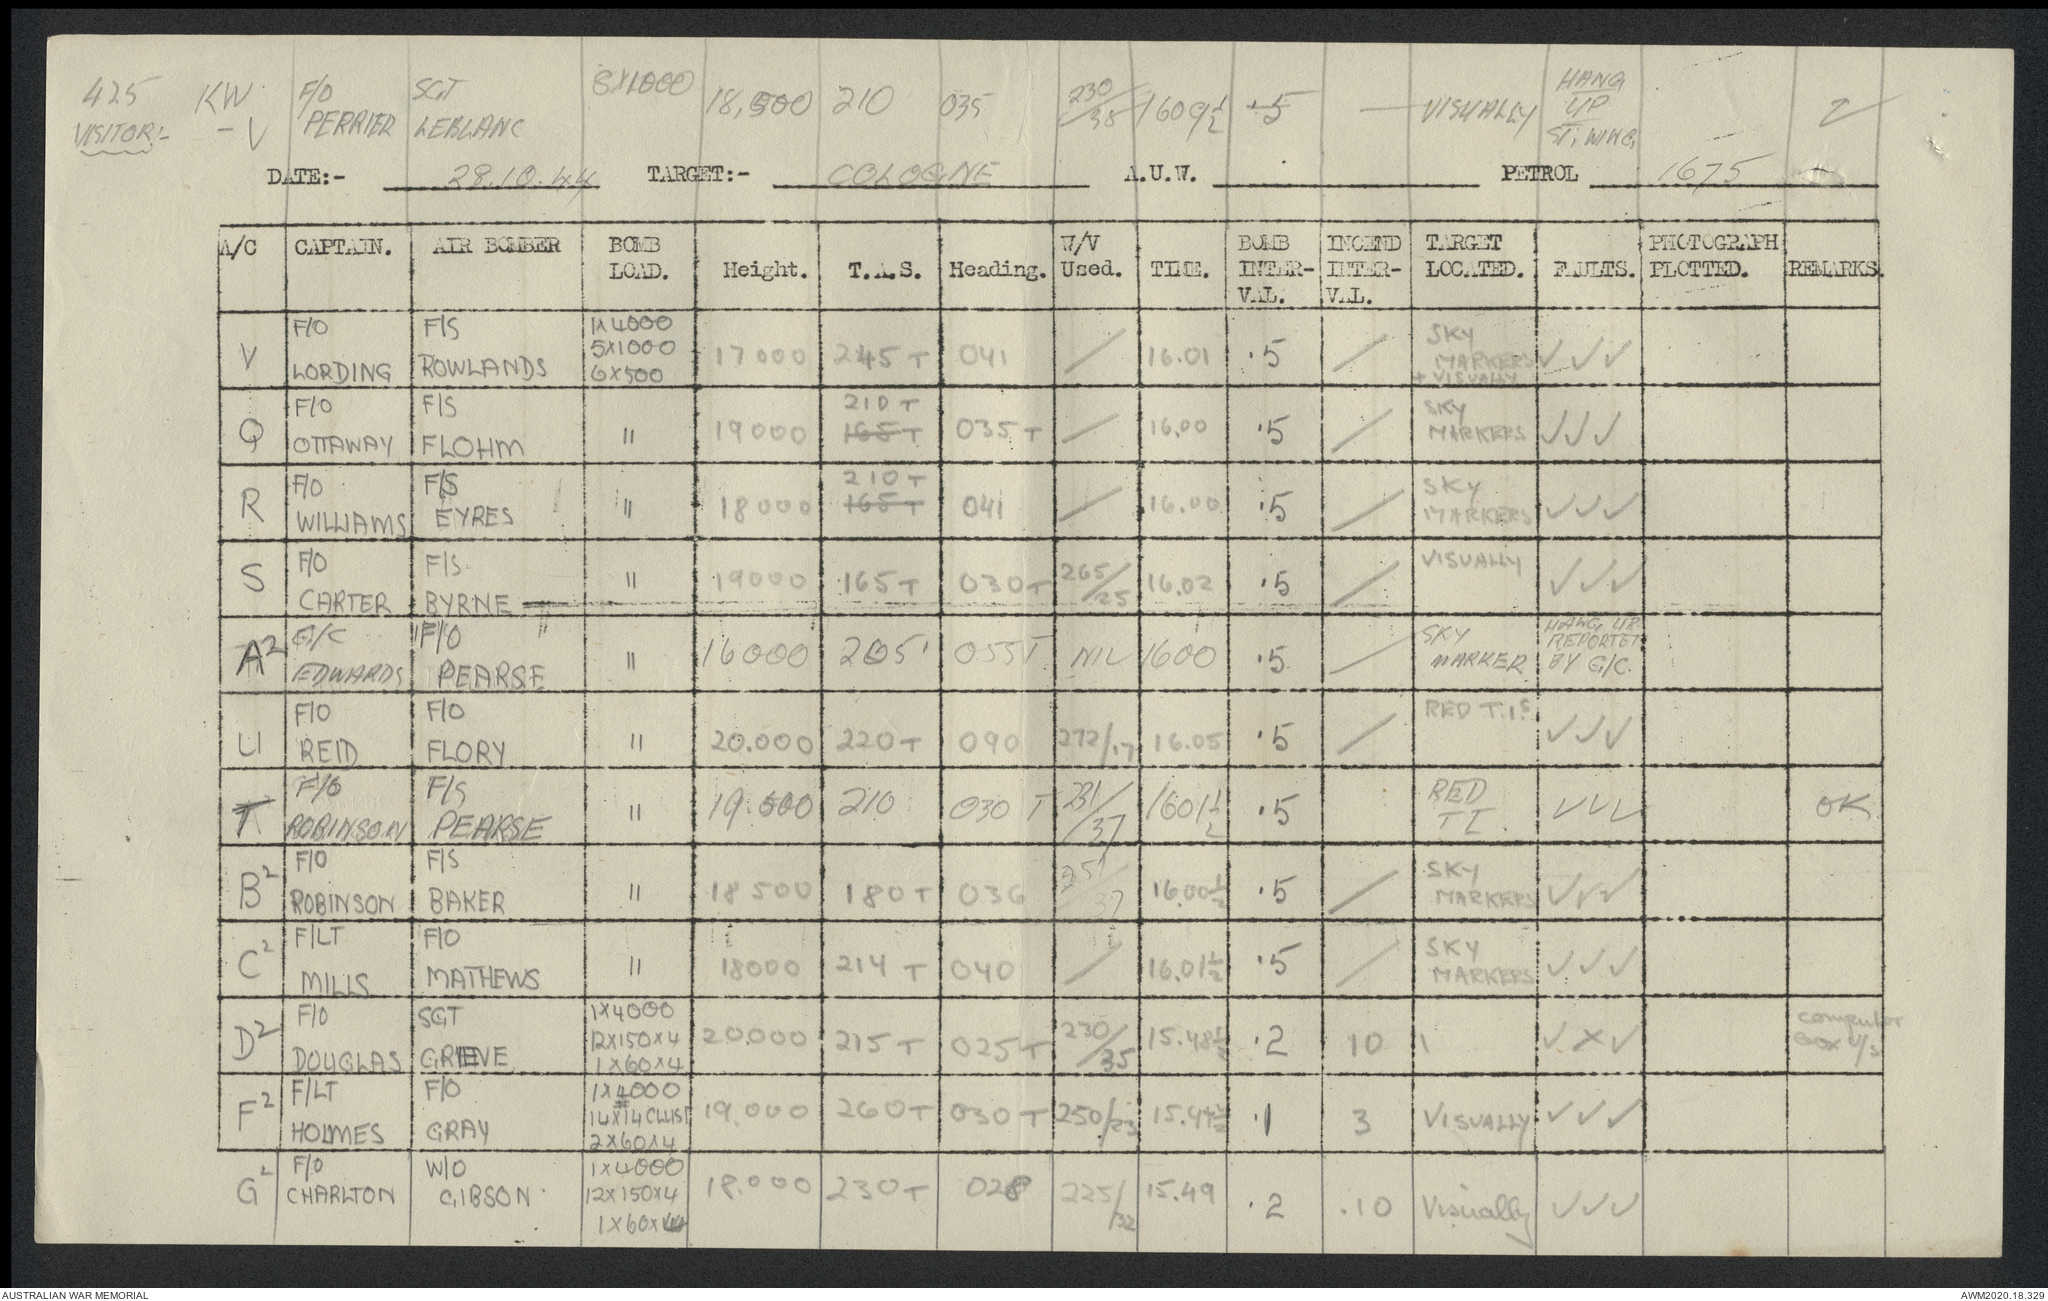 425 KW F/O SGT 8X1000 18,500 210 035 230/38 1609½ .5 — VISUALLY HANG
VISITOR:- -V PERRIER LEBLANC UP
ST. WING
DATE:- 28.10.44 TARGET:- COLOGNE A.U.W. PETROL 1675
A/C CAPTAIN. AIR BOMBER BOMB LOAD. Height. T.A.S. Heading. W/V Used. TIME. BOMB INTER-VAL. INCEND INTER-VAL. TARGET LOCATED. FAULTS. PHOTOGRAPH PLOTTED. REMARKS.
V F/O LORDING F/S ROWLANDS 1X4000 5X1000 6X500 17000 245 T 041 / 16.01 .5 / SKY MARKERS + VISUALLY ✓✓✓
Q F/O OTTAWAY F/S FLOHM " 19000 210 T 165 T 035 T / 16.00 .5 / SKY MARKERS ✓✓✓
R F/O WILLIAMS F/S EYRES " 18000 210 T 165 T 041 / 16.00 .5 / SKY MARKERS ✓✓✓
S F/O CARTER F/S BYRNE " 19000 165 T 030 T 265/25 16.02 .5 / VISUALLY ✓✓✓
A2 G/C EDWARDS F/O PEARSE " 16000 205 055T NIL 1600 .5 / SKY MARKER HANG UP REPORTED BY G/C.
U F/O REID F/O FLORY " 20.000 220 T 090 272/17 16.05 .5 / RED T.I.s ✓✓✓
T F/O ROBINSON F/S PEARSE " 19.500 210 030 T 231/37 1601½ .5 RED TI ✓✓✓ OK
B2 F/O ROBINSON F/S BAKER " 18500 180 T 036 251/37 16.00½ .5 / SKY MARKERS ✓✓✓
C2 F/LT MILLS F/O MATHEWS " 18000 214 T 040 / 16.01½ .5 / SKY MARKERS ✓✓✓
D2 F/O DOUGLAS SGT GRIEVE 1X4000 12X150X4 1X60X4 20.000 215 T 025 T 230/35 15.48½ .2 10 ✓X✓ computor Box u/s
F2 F/LT HOLMES F/O GRAY 1X4000 14X14 CLUST 2X60X4 19.000 260 T 030 T 250/23 .1 3 VISUALLY ✓✓✓
G2 F/O CHARLTON W/O GIBSON 1X4000 12X150X4 1X60X4 18.000 230 T 028 225/32 15.49 .2 .10 Visually ✓✓✓
AUSTRALIAN WAR MEMORIAL AWM2020.18.329